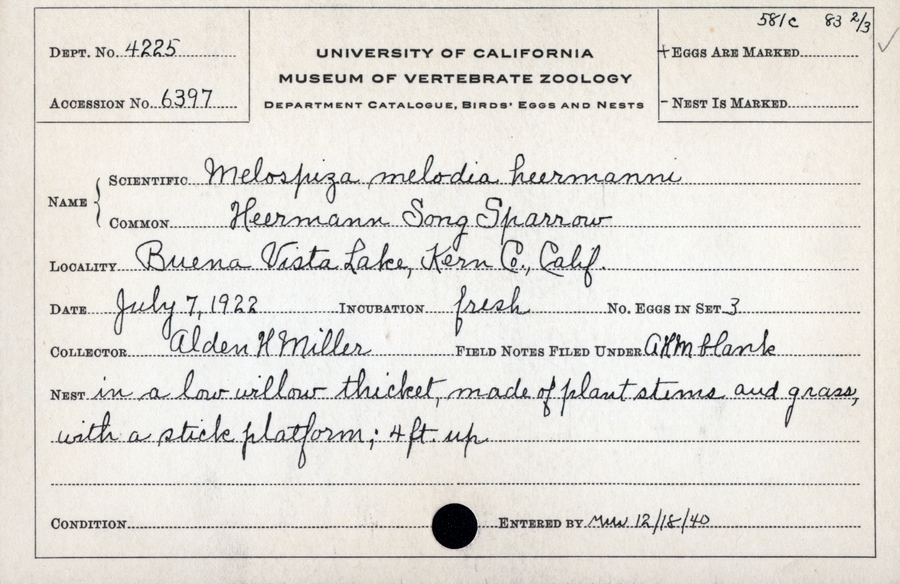 581c 83 2/3
Dept. No. 4225
UNIVERSITY OF CALIFORNIA
+ Eggs Are Marked
MUSEUM OF VERTEBRATE ZOOLOGY
Accession No. 6397
Department Catalogue, Birds' Eggs and Nests
- Nest Is Marked
Name { Scientific Melospiza melodia heermanni
Common Heermann Song Sparrow
Locality Buena Vista Lake, Kern Co., Calif.
Date July 7, 1922 Incubation fresh No. Eggs in Set 3
Collector Alden H Miller Field Notes Filed Under AHM blank
Nest in a low willow thicket, made of plant stems and grass,
with a stick platform; 4 ft. up
Condition Entered by 12/18/40